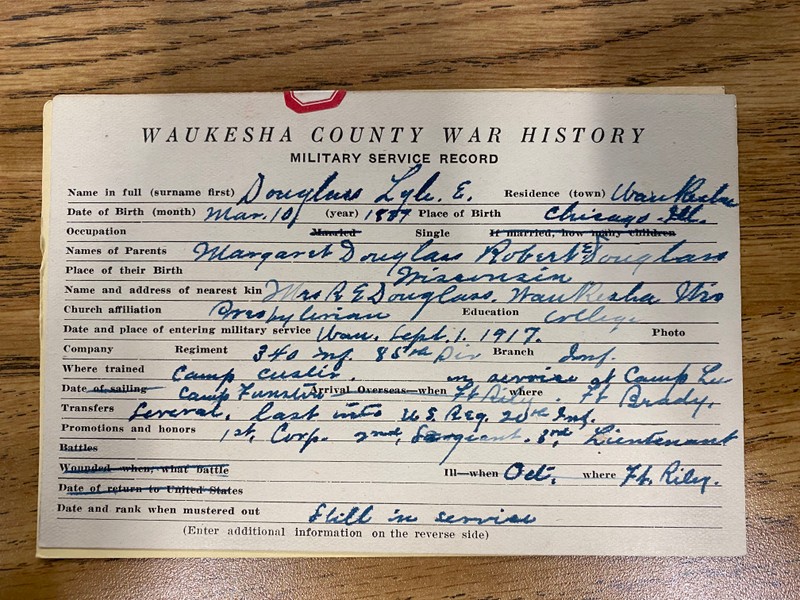 WAUKESHA COUNTY WAR HISTORY
MILITARY SERVICE RECORD
Name in full (surname first) Douglass Lyle. E. Residence (town) Waukesha
Date of Birth (month) Mar. 10, (year) Place of Birth Chicago. Ill.
Occupation Married Single If married, how many children
Names of Parents Margaret Douglass Robert E Douglass
Place of their Birth Wisconsin
Name and address of nearest kin Mrs R E Douglass. Waukesha Wis
Church affiliation Presbyterian Education College
Date and place of entering military service Wau. Sept. 1. 1917. Photo
Company Regiment 340 Inf. 85th Div Branch Inf.
Where trained Camp Custer. in service at Camp Lee
Date of sailing Camp Funston Arrival Overseas—when Ft Rily. where Ft Brady.
Transfers Several. last into U S Reg. 20th Inf.
Promotions and honors 1st, Corp. 2nd, Sargeant. 3rd, Lieutenant
Battles
Wounded—when, what battle Ill—when Oct. where Ft. Rily.
Date of return to United States
Date and rank when mustered out Still in service
(Enter additional information on the reverse side)